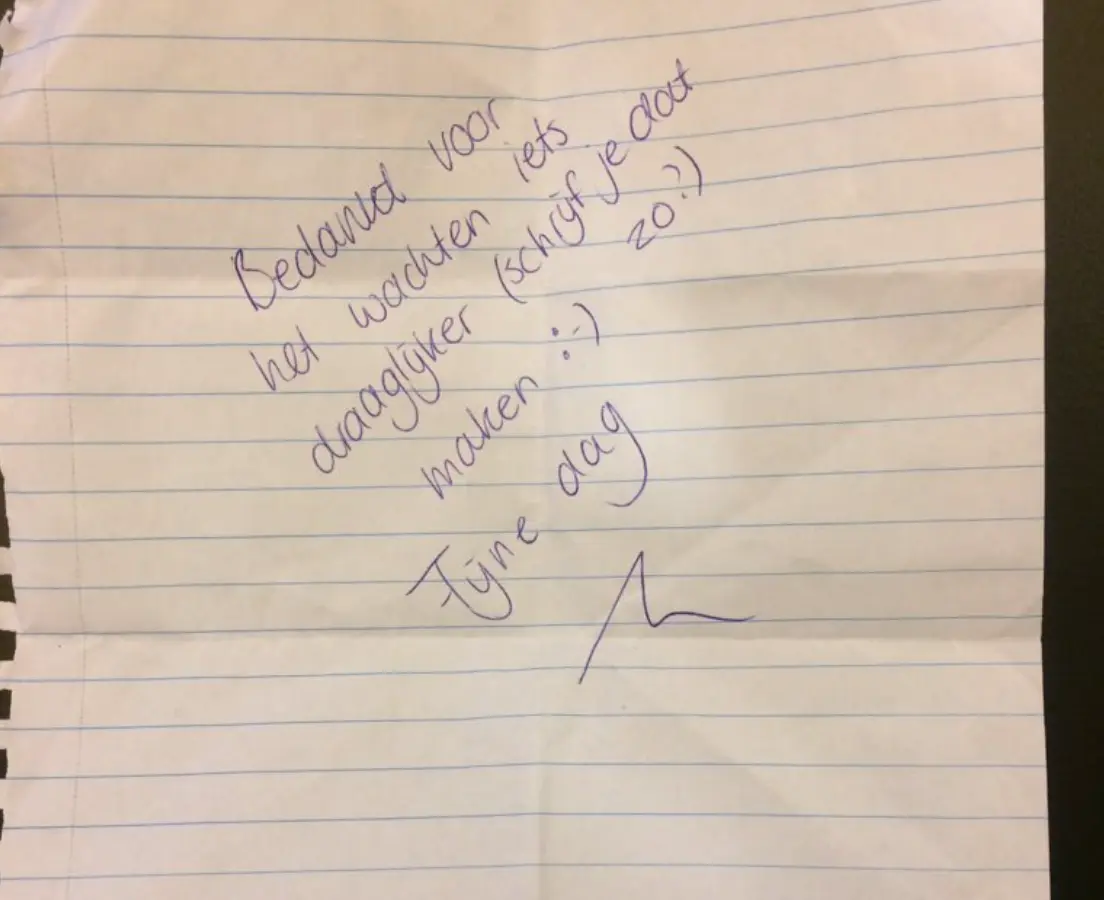 Bedankt voor
het wachten iets
draaglijker (schrijf je dat
zo?)
maken :-)
Fijne dag